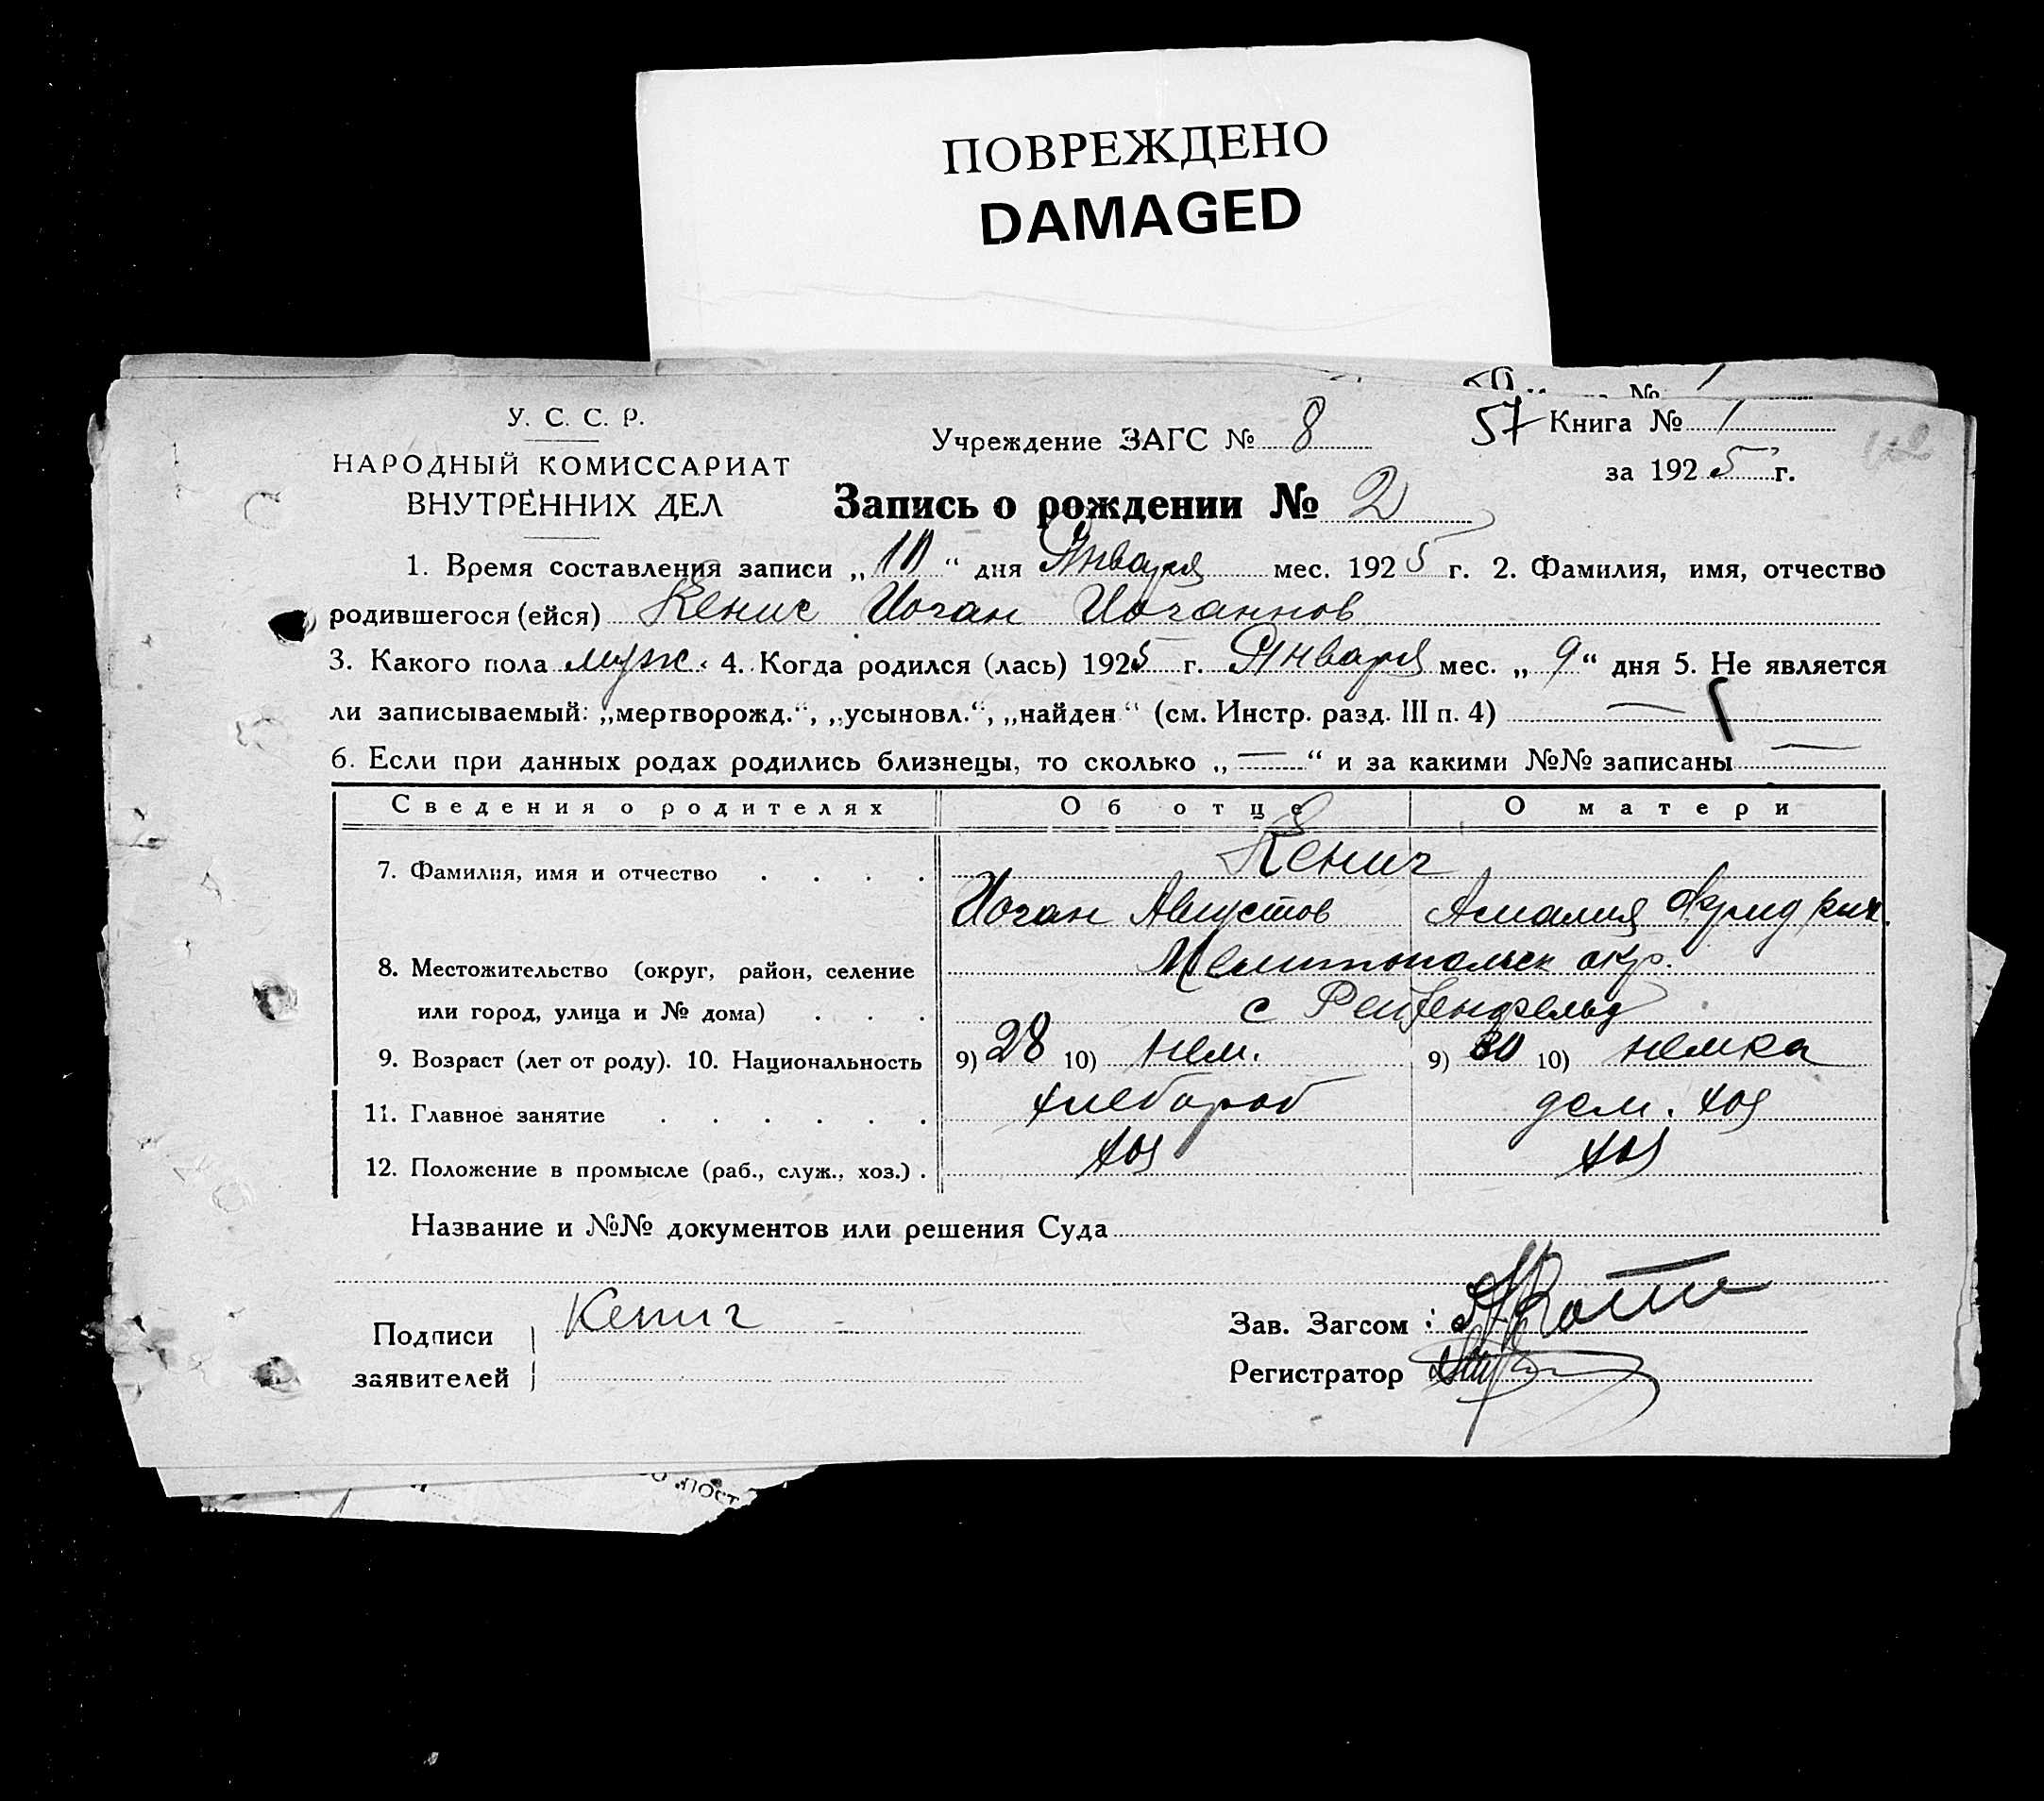 ПОВРЕЖДЕНО
DAMAGED
№ 1
У. С. С. Р.
НАРОДНЫЙ КОМИССАРИАТ
ВНУТРЕННИХ ДЕЛ
Учреждение ЗАГС № 8
57 Книга № 1
за 1925 г.
Запись о рождении № 2
1. Время составления записи „10“ дня Января мес. 1925 г. 2. Фамилия, имя, отчество
родившегося (ейся) Кениг Иоган Иоганнов
3. Какого пола муж. 4. Когда родился (лась) 1925 г. Января мес. „9“ дня 5. Не является
ли записываемый: „мертворожд.“, „усыновл.“, „найден“ (см. Инстр. разд. III п. 4) —
6. Если при данных родах родились близнецы, то сколько „—“ и за какими №№ записаны —
Сведения о родителях Об отце О матери
7. Фамилия, имя и отчество . . . . Кениг
Иоган Августов Амалия Фридрих.
8. Местожительство (округ, район, селение Мелитопольск окр.
или город, улица и № дома) . . . с Рейхенфельд
9. Возраст (лет от роду). 10. Национальность 9) 28 10) нем. 9) 30 10) немка
11. Главное занятие . . . . . . хлебороб дом. хоз
12. Положение в промысле (раб., служ., хоз.) . хоз хоз
Название и №№ документов или решения Суда
Подписи Кениг Зав. Загсом :
заявителей Регистратор